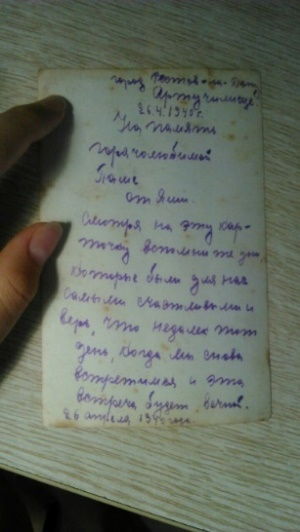 город Ростов-на-Дону
Артучилище
26.4.1940г.
На память
горячолюбимой
Паше
от Яши.
Смотря на эту кар-
точку вспомни те дни
которые были для нас
самыми счастливыми и
верь, что недалек тот
день, когда мы снова
встретимся и эта
встреча будет вечной.
26 апреля 1940 года